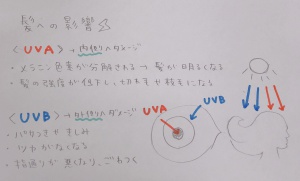 髪への影響
〈UVA〉→内側のダメージ
・メラニン色素が分解される→髪が明るくなる
・髪の強度が低下し、切れ毛や枝毛になる
〈UVB〉→外側のダメージ
・パサつきやきしみ
・ツヤがなくなる
・指通りが悪くなり、ごわつく
UVA
UVB